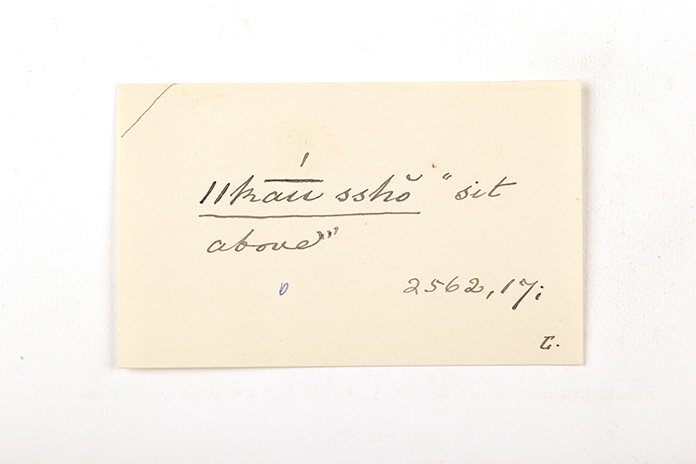 ǁkā́u̅ sshŏ "sit
above"
2562,17;
L.